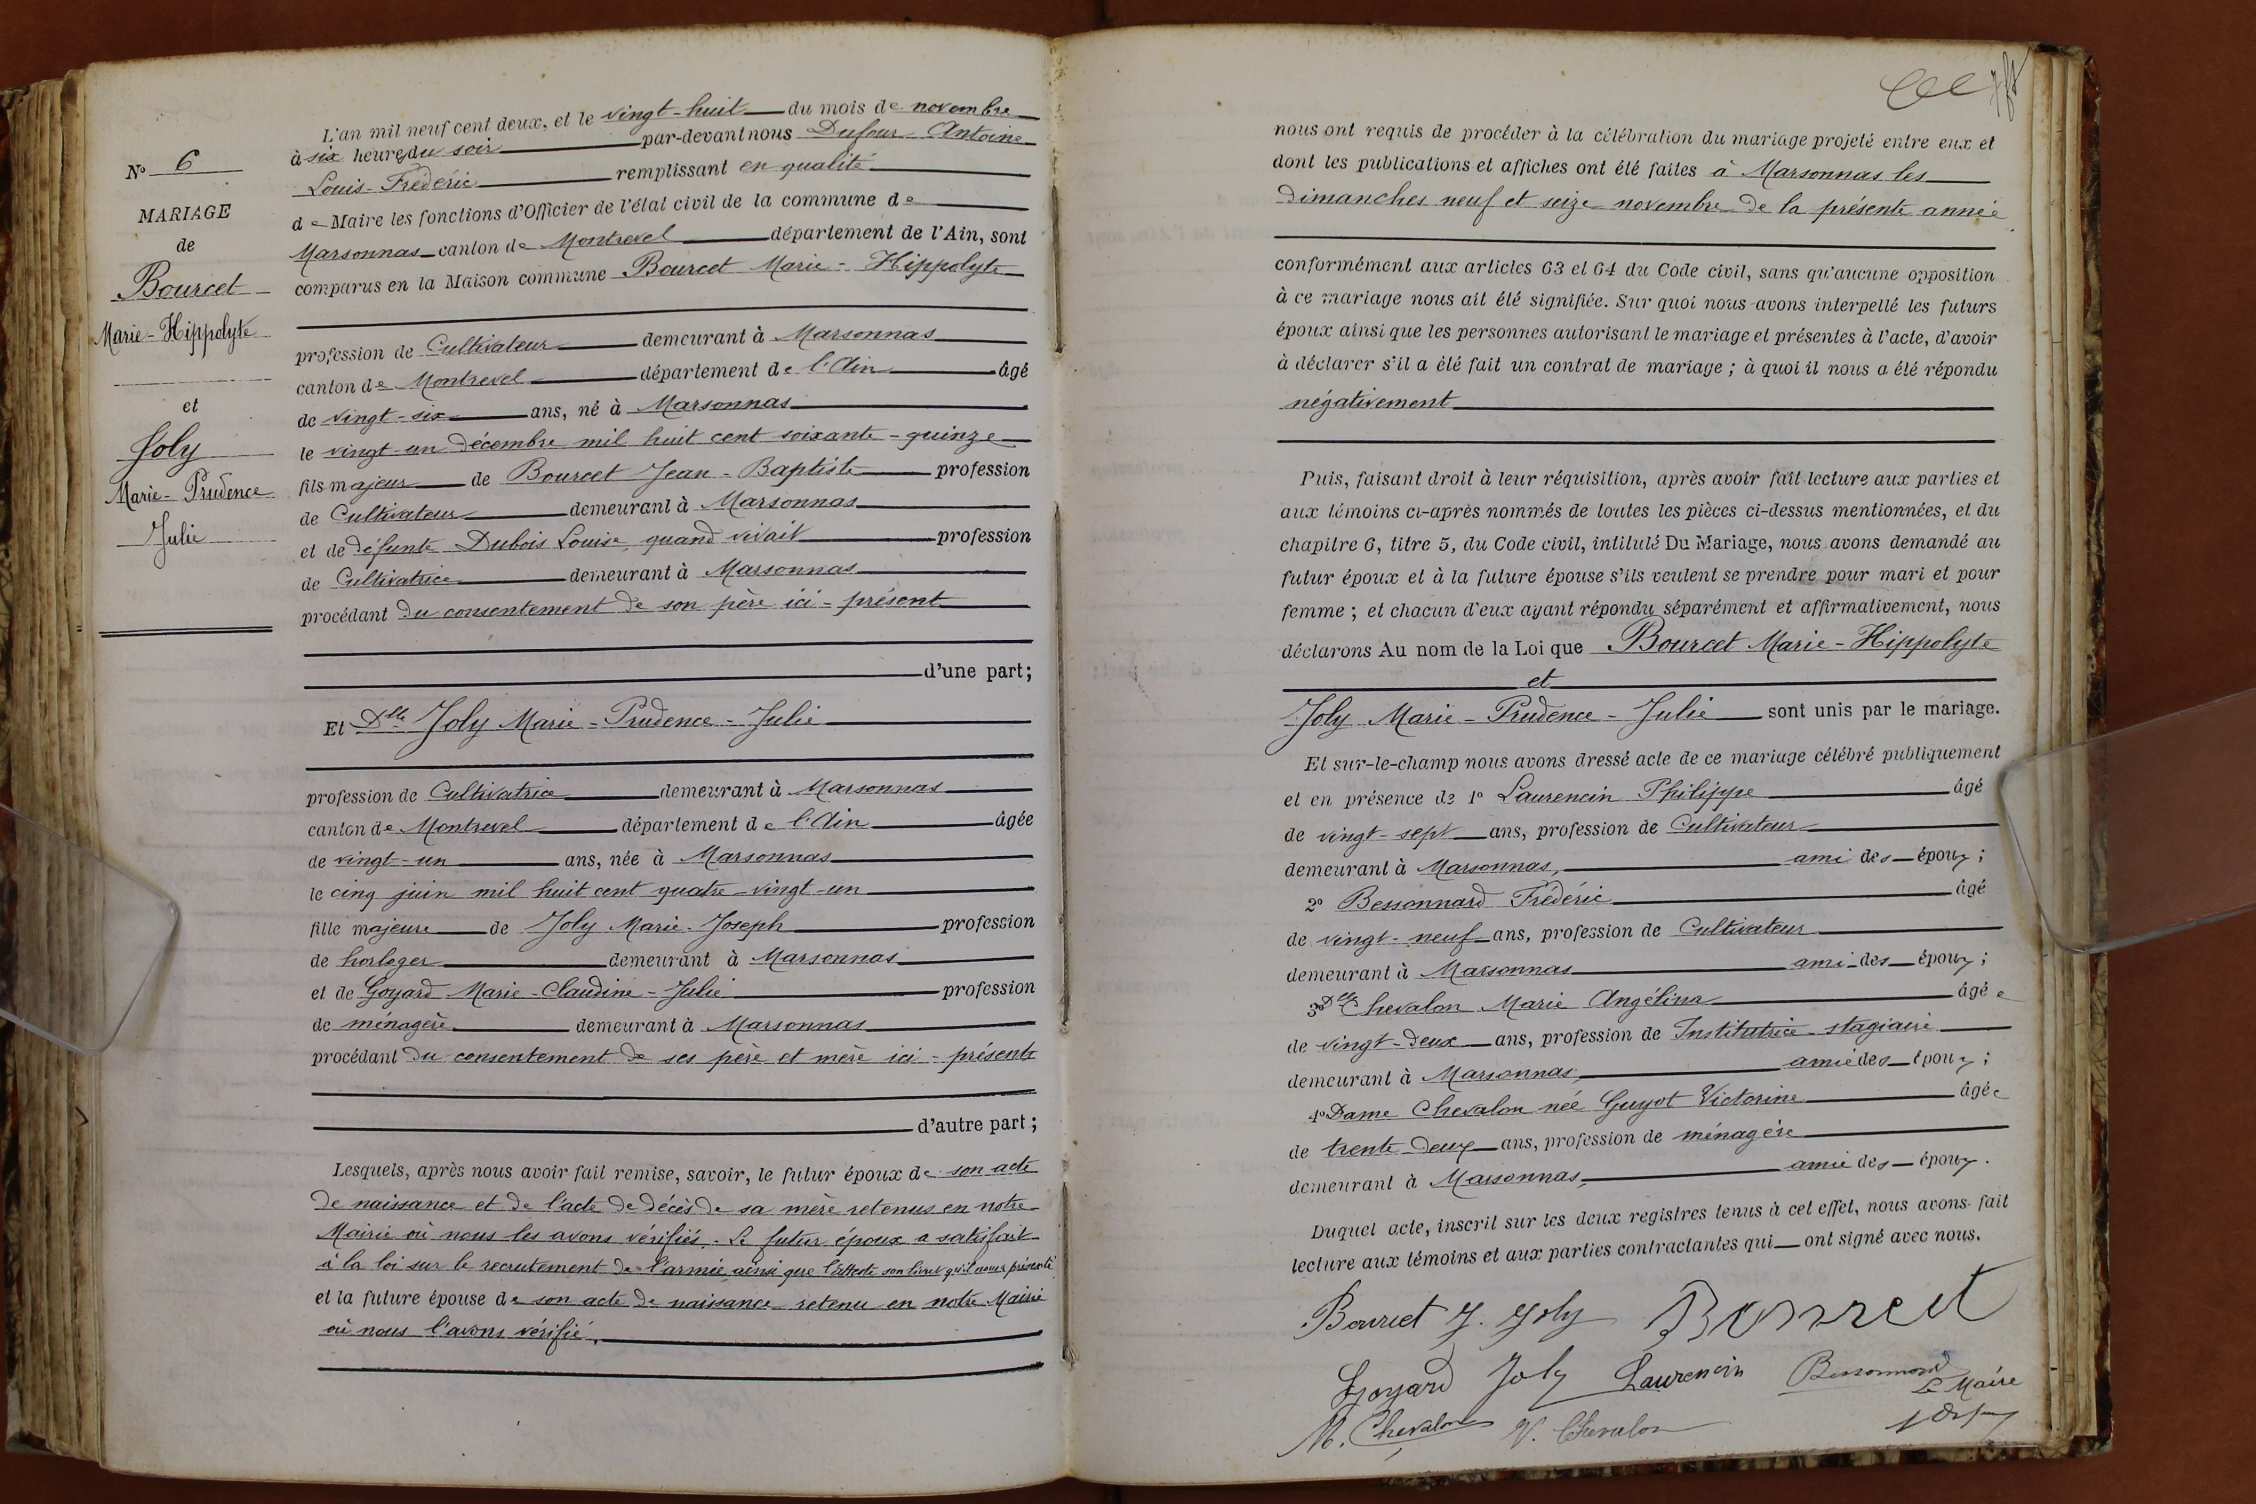 N° 6
MARIAGE
de
Bourcet
Marie-Hippolyte
et
Joly
Marie-Prudence
Julie
L'an mil neuf cent deux, et le vingt-huit du mois de novembre
à six heures du soir par-devant nous Dufour Antoine
Louis-Frédéric remplissant en qualité
de Maire les fonctions d'Officier de l'état civil de la commune de
Marsonnas canton de Montrevel département de l'Ain, sont
comparus en la Maison commune Bourcet Marie-Hippolyte
profession de Cultivateur demeurant à Marsonnas
canton de Montrevel département de l'Ain âgé
de vingt-six ans, né à Marsonnas
le vingt un décembre mil huit cent soixante-quinze
fils majeur de Bourcet Jean-Baptiste profession
de Cultivateur demeurant à Marsonnas
et de défunte Dubois Louise, quand vivait profession
de Cultivatrice demeurant à Marsonnas
procédant du consentement de son père ici-présent
d'une part;
Et Dlle Joly Marie-Prudence-Julie
profession de Cultivatrice demeurant à Marsonnas
canton de Montrevel département de l'Ain âgée
de vingt-un ans, née à Marsonnas
le cinq juin mil huit cent quatre-vingt-un
fille majeure de Joly Marie-Joseph profession
de horloger demeurant à Marsonnas
et de Goyard Marie-Claudine-Julie profession
de ménagère demeurant à Marsonnas
procédant du consentement de ses père et mère ici-présents
d'autre part;
Lesquels, après nous avoir fait remise, savoir, le futur époux de son acte
de naissance et de l'acte de décès de sa mère retenus en notre
Mairie où nous les avons vérifiés. Le futur époux a satisfait
à la loi sur le recrutement de l'armée ainsi que l'atteste son livret qu'il nous a présenté
et la future épouse de son acte de naissance retenu en notre Mairie
où nous l'avons vérifié.
nous ont requis de procéder à la célébration du mariage projeté entre eux et
dont les publications et affiches ont été faites à Marsonnas les
dimanches neuf et seize novembre de la présente année
conformément aux articles 63 et 64 du Code civil, sans qu'aucune opposition
à ce mariage nous ait été signifiée. Sur quoi nous avons interpellé les futurs
époux ainsi que les personnes autorisant le mariage et présentes à l'acte, d'avoir
à déclarer s'il a été fait un contrat de mariage; à quoi il nous a été répondu
négativement
Puis, faisant droit à leur réquisition, après avoir fait lecture aux parties et
aux témoins ci-après nommés de toutes les pièces ci-dessus mentionnées, et du
chapitre 6, titre 5, du Code civil, intitulé Du Mariage, nous avons demandé au
futur époux et à la future épouse s'ils veulent se prendre pour mari et pour
femme; et chacun d'eux ayant répondu séparément et affirmativement, nous
déclarons Au nom de la Loi que Bourcet Marie-Hippolyte
et
Joly Marie-Prudence-Julie sont unis par le mariage.
Et sur-le-champ nous avons dressé acte de ce mariage célébré publiquement
et en présence de 1° Laurencin Philippe âgé
de vingt-sept ans, profession de Cultivateur
demeurant à Marsonnas, ami des époux;
2° Bessonnard Frédéric âgé
de vingt-neuf ans, profession de Cultivateur
demeurant à Marsonnas ami des époux;
3° Dlle Chevalon Marie Angélina âgée
de vingt-deux ans, profession de Institutrice stagiaire
demeurant à Marsonnas, amie des époux;
4° Dame Chevalon née Guyot Victorine âgée
de trente-deux ans, profession de ménagère
demeurant à Marsonnas, amie des époux.
Duquel acte, inscrit sur les deux registres tenus à cet effet, nous avons fait
lecture aux témoins et aux parties contractantes qui ont signé avec nous.
Bourcet J. Joly Bourcet
Goyard Joly Laurencin Bessonnard
Le Maire
M. Chevalon V. Chevalon